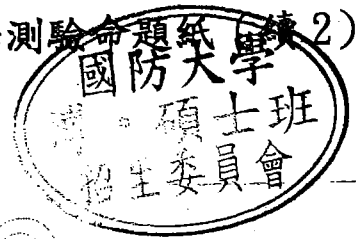 測驗命題紙(續2)
國防大學
碩士班
招生委員會